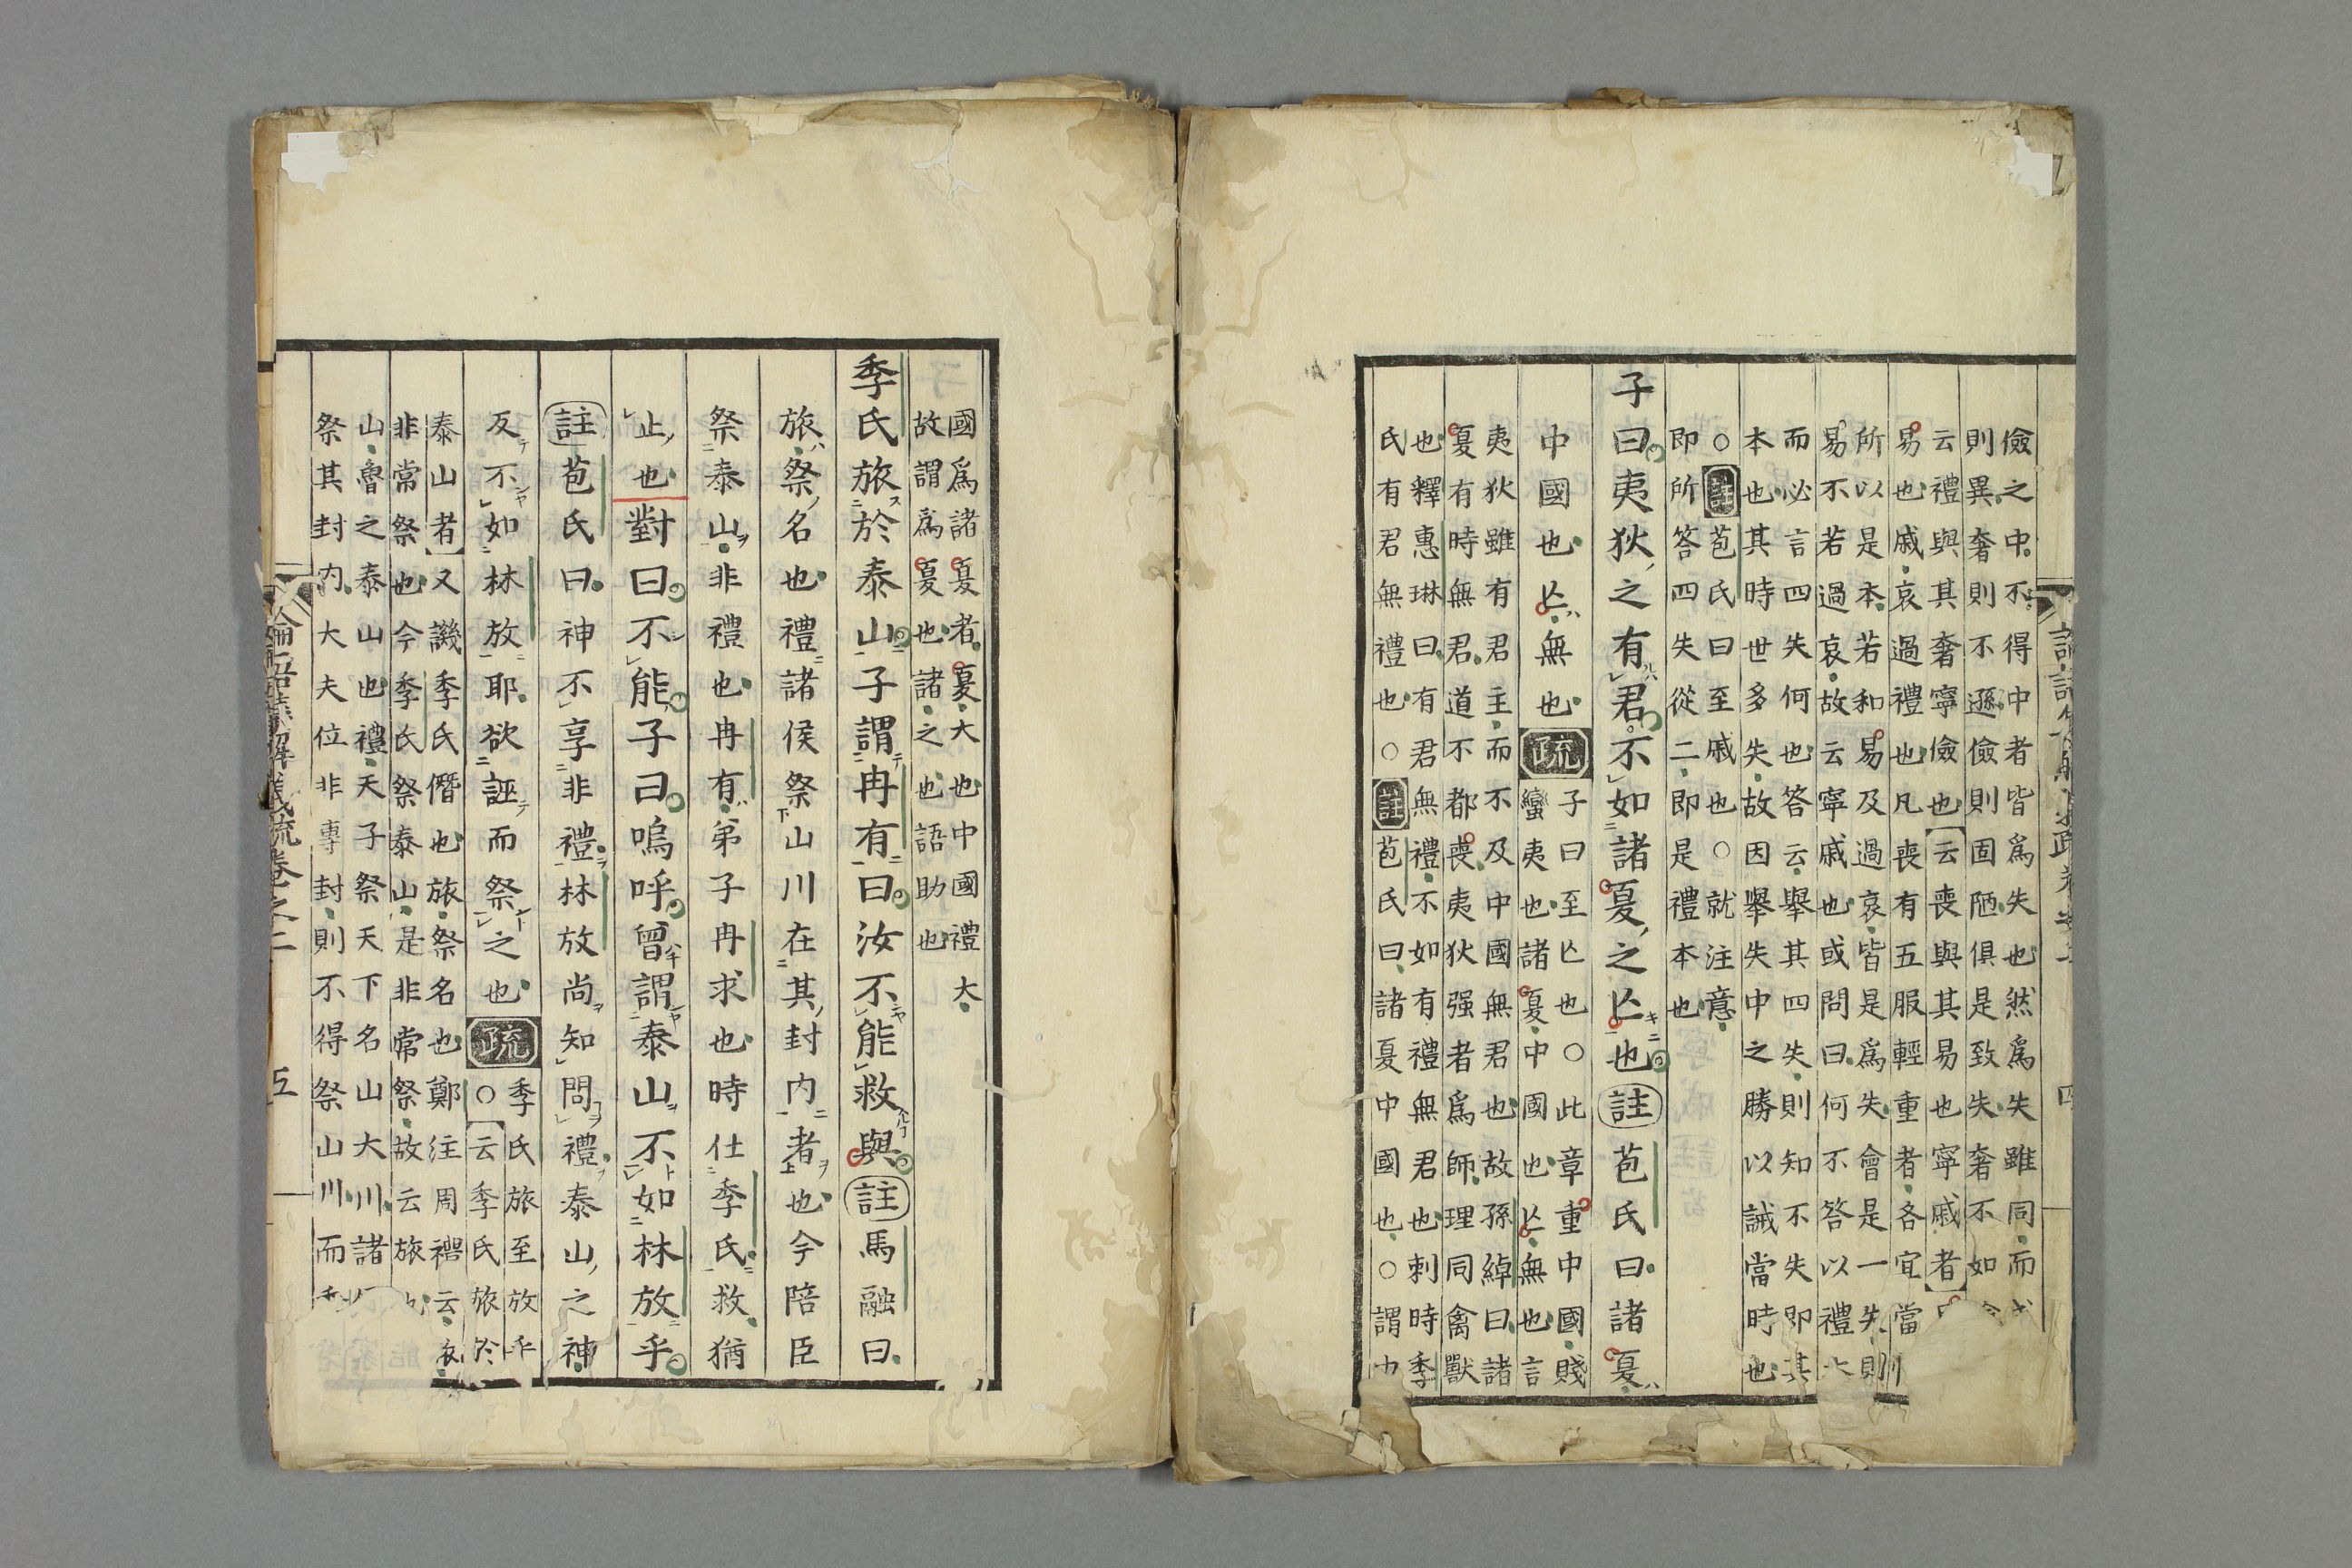 儉之中不得中者皆爲失也然爲失雖同而
則異奢則不遜儉則固陋俱是致失奢不如
云禮與其奢寧儉也云喪與其易也寧戚者
易也戚哀過禮也凡喪有五服輕重者各宜當
所以是本若和易及過哀皆是爲失會是一失則
易不若過哀故云寧戚也或問曰何不答以禮
而必言四失何也答云舉其四失則知不失即其
本也其時世多失故因舉失中之勝以誡當時也
○註苞氏曰至戚也○就注意
即所答四失從二即是禮本也
子曰夷狄之有君不如諸夏之亡也註苞氏曰諸夏
中國也亡無也疏
子曰至亡也○此章重中國賤
蠻夷也諸夏中國也亡無也言
夷狄雖有君主而不及中國無君也故孫綽曰諸
夏有時無君道不都喪夷狄强者爲師理同禽獸
也釋惠琳曰有君無禮不如有禮無君也刺時季
氏有君無禮也○註苞氏曰諸夏中國也○謂中
國爲諸夏者夏大也中國禮大
故謂爲夏也諸之也語助也
季氏旅於泰山子謂冉有曰汝不能救與註馬融曰
旅祭名也禮諸侯祭山川在其封内者也今陪臣
祭泰山非禮也冉有弟子冉求也時仕季氏救猶
止也對曰不能子曰嗚呼曾謂泰山不如林放乎
註苞氏曰神不享非禮林放尚知問禮泰山之神
反不如林放耶欲誣而祭之也疏
季氏旅至放乎
○云季氏旅於
泰山者又譏季氏僭也旅祭名也鄭注周禮云
非常祭也今季氏祭泰山是非常祭故云旅也
山魯之泰山也禮天子祭天下名山大川諸
祭其封内大夫位非專封則不得祭山川而
論語集解義疏卷之二
五